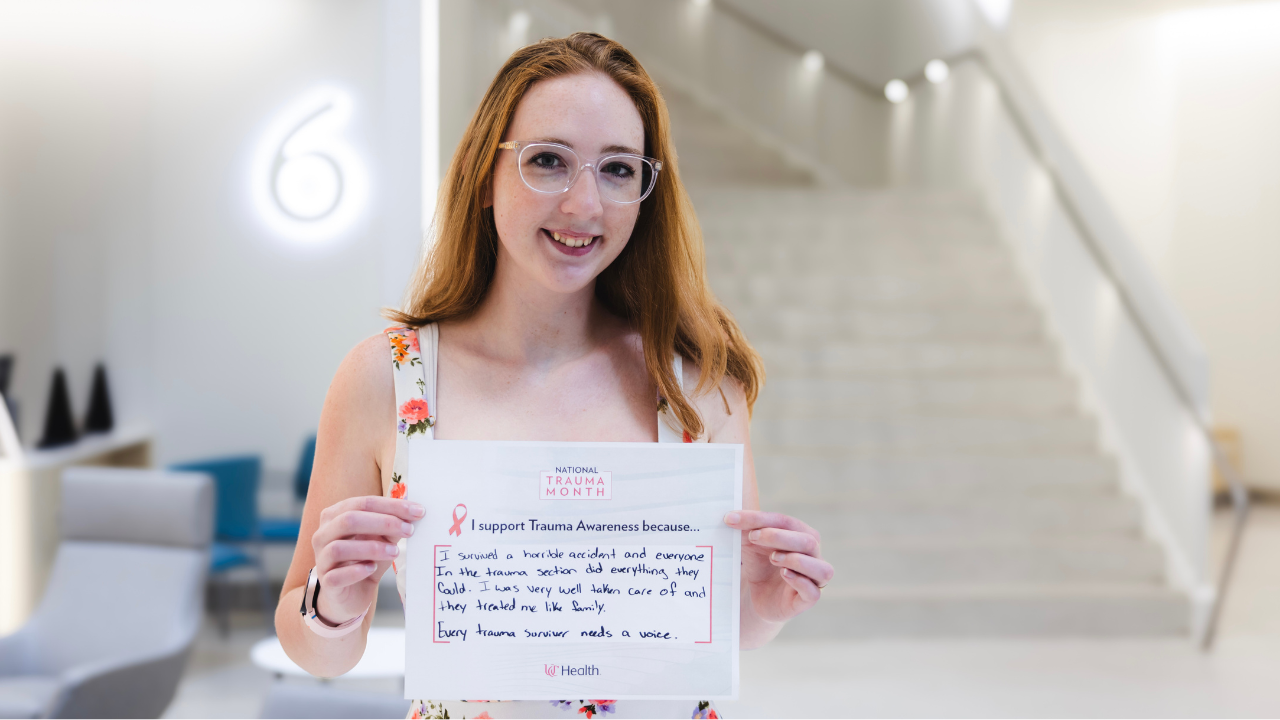 6
NATIONAL
TRAUMA
MONTH
I support Trauma Awareness because...
I survived a horrible accident and everyone
In the trauma section did everything they
Could. I was very well taken care of and
they treated me like family.
Every trauma surviver needs a voice.
UC Health